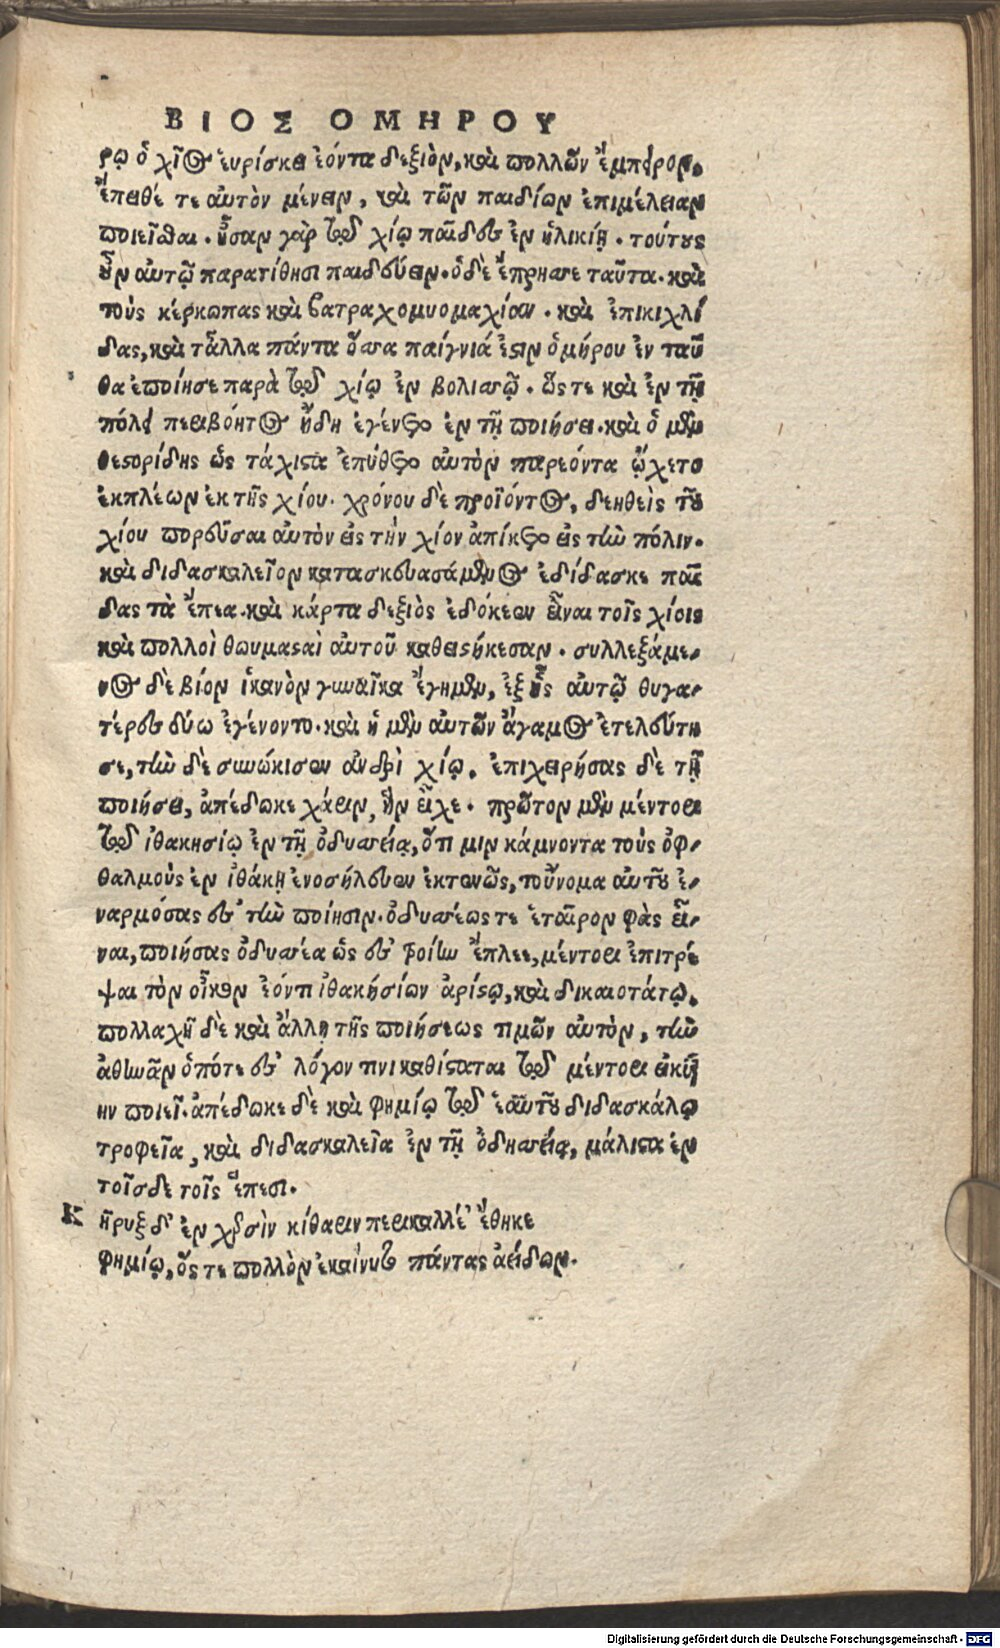 ΒΙΟΣ ΟΜΗΡΟΥ
ρῳ ὁ χῖος ἑυρίσκει ἐόντα δεξιὸν, καὶ πολλῶν ἔμπειρον,
ἔπειθέ τε ἀυτὸν μένειν, καὶ τῶν παιδίων ἐπιμέλειαν
ποιεῖσθαι. ἦσαν γὰρ τῷ χίῳ παῖδες ἐν ἡλικίῃ. τούτους
οὖν ἀυτῷ παρατίθησι παιδεύειν. ὁ δὲ ἔπρησσε ταῦτα. καὶ
τοὺς κέρκωπας καὶ βατραχομυομαχίαν. καὶ ἐπικιχλί
δας, καὶ τἆλλα πάντα ὅσσα παίγνιά ἐστιν ὁμήρου ἐν ταῦ
θα ἐποίησε παρὰ τῷ χίῳ ἐν βολισσῷ. ὥς τε καὶ ἐν τῇ
πόλει περιβόητος ἤδη ἐγένετο ἐν τῇ ποιήσει. καὶ ὁ μὲν
θεστορίδης ὡς τάχιστα ἐπύθετο ἀυτὸν παρεόντα ᾤχετο
ἐκπλέων ἐκ τῆς χίου. χρόνου δὲ προϊόντος, δεηθεὶς τοῦ
χίου πορεῦσαι ἀυτὸν εἰς τὴν χίον ἀπίκετο εἰς τὴν πόλιν.
καὶ διδασκαλεῖον κατασκευασάμενος ἐδίδασκε παῖ
δας τὰ ἔπεα. καὶ κάρτα δεξιὸς ἐδόκεεν εἶναι τοῖς χίοις
καὶ πολλοὶ θωυμασταὶ ἀυτοῦ καθειστήκεσαν. συλλεξάμε-
νος δὲ βίον ἱκανὸν γυναῖκα ἔγημεν, ἐξ ἧς ἀυτῷ θυγα-
τέρες δύω ἐγένοντο. καὶ ἡ μὲν ἀυτῶν ἄγαμος ἐτελεύτη
σε, τὴν δὲ συνῴκισεν ἀνδρὶ χίῳ. ἐπιχειρήσας δὲ τῇ
ποιήσει, ἀπέδωκε χάριν, ἣν εἶχε. πρῶτον μὲν μέντορι
τῷ ἰθακησίῳ ἐν τῇ ὀδυσσείᾳ, ὅτι μιν κάμνοντα τοὺς ὀφ-
θαλμοὺς ἐν ἰθάκῃ ἐνοσήλευεν ἐκτενῶς, τοὔνομα ἀυτοῦ ἐ-
ναρμόσας ἐς τὴν ποίησιν. ὀδυσσέως τε ἑταῖρον φὰς εἶ-
ναι, ποιήσας ὀδυσσέα ὡς ἐς τροίην ἔπλεε, μέντορι ἐπιτρέ
ψαι τὸν οἶκον ἐόντι ἰθακήσίων ἀρίστῳ, καὶ δικαιοτάτῳ.
πολλαχῆ δὲ καὶ ἄλλη τῆς ποιήσεως τιμῶν ἀυτὸν, τὴν
ἀθηνᾶν ὁπότε ἐς λόγον τινι καθίσταται τῷ μέντορι εἰκυῖ
ην ποιεῖ. ἀπέδωκε δὲ καὶ φημίῳ τῷ ἑαυτοῦ διδασκάλῳ
τροφεῖα, καὶ διδασκαλεῖα ἐν τῇ ὀδησσείᾳ, μάλιστα ἐν
τοῖσδε τοῖς ἔπεσι.
Κ ῆρυξ δ᾽ ἐν χερσὶν κίθαριν περικαλλέ᾽ ἔθηκε
φημίῳ, ὅς τε πολλὸν ἐκαίνυτο πάντας ἀείδων.
Digitalisierung gefördert durch die Deutsche Forschungsgemeinschaft - DFG